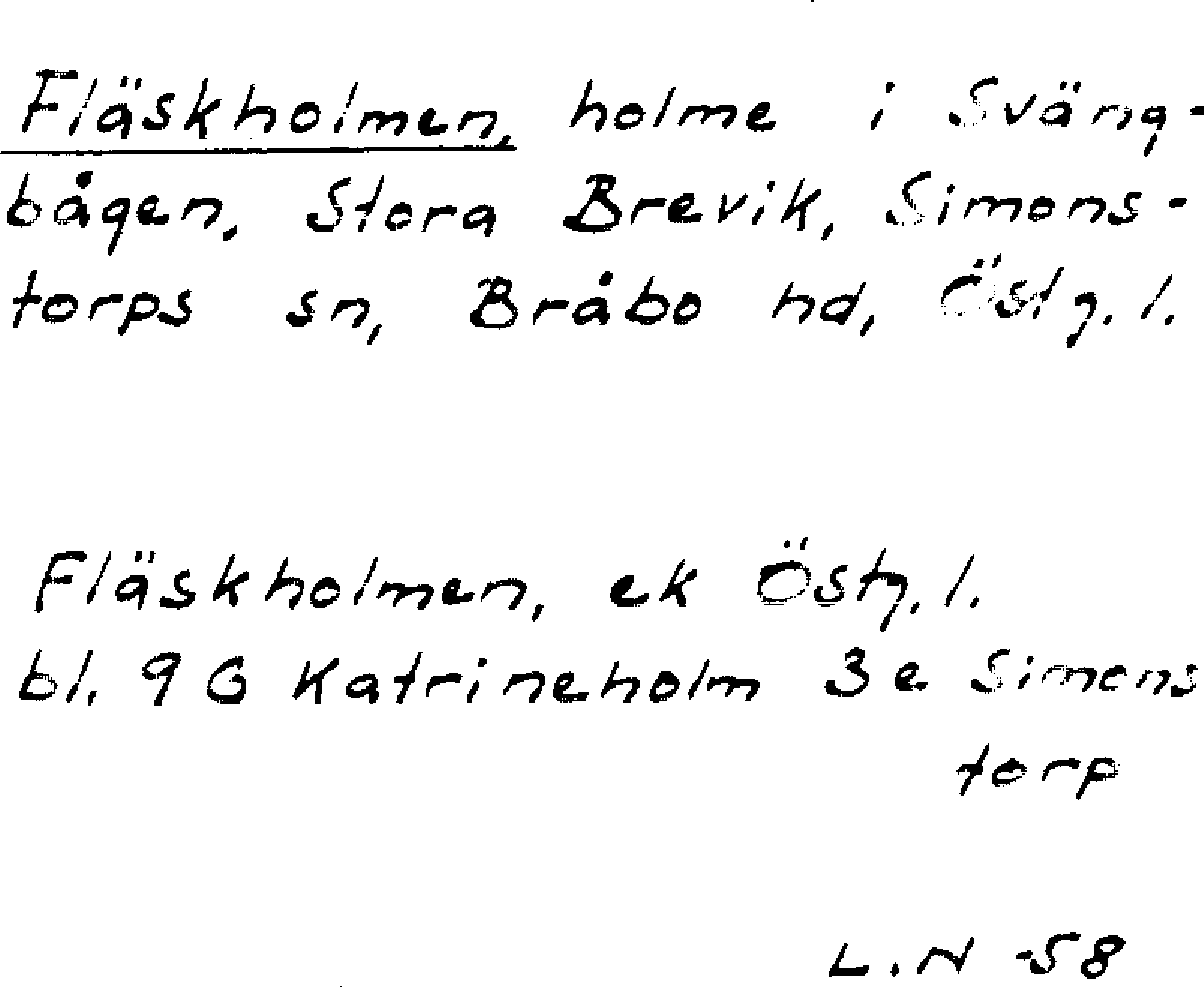 Fläskholmen, holme i Sväng-
bågen, Stora Brevik, Simons-
torps sn, Bråbo hd, Östg. l.
Fläskholmen, ek Östg. l.
bl. 9 G Katrineholm 3 e Simons
torp
L. N -58